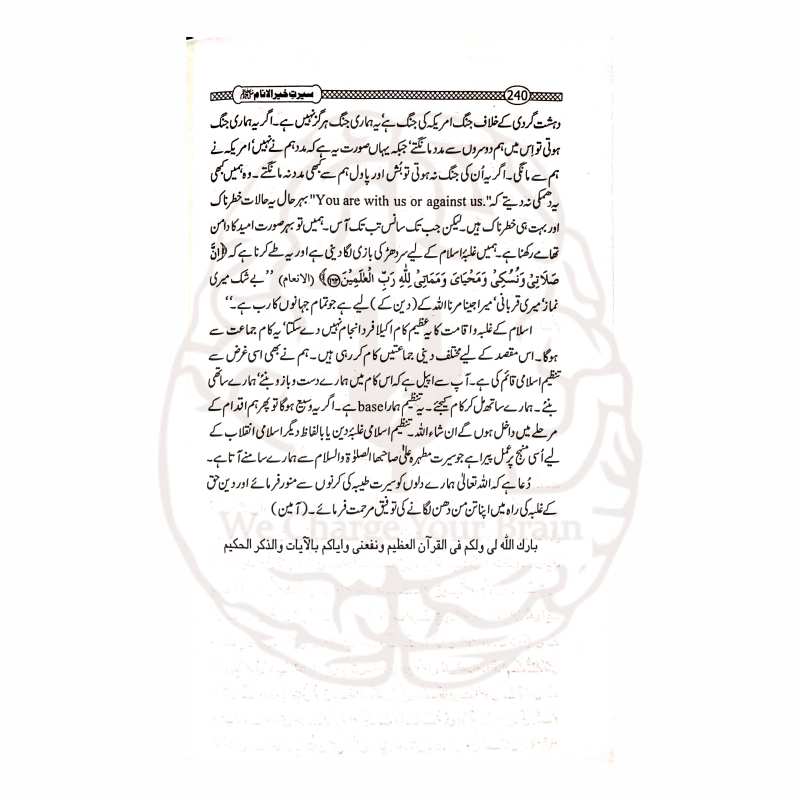 240 سیرتِ خیر الانام ﷺ
دہشت گردی کے خلاف جنگ امریکہ کی جنگ ہے‘ یہ ہماری جنگ ہرگز نہیں ہے۔ اگر یہ ہماری جنگ
ہوتی تو اِس میں ہم دوسروں سے مدد مانگتے‘ جبکہ یہاں صورت یہ ہے کہ مدد ہم نے نہیں‘ امریکہ نے
ہم سے مانگی۔ اگر یہ اُن کی جنگ نہ ہوتی تو بُش اور پاول ہم سے کبھی مدد نہ مانگتے۔ وہ ہمیں کبھی
یہ دھمکی نہ دیتے کہ "You are with us or against us." بہرحال یہ حالات خطرناک
اور بہت ہی خطرناک ہیں۔ لیکن جب تک سانس تب تک آس۔ ہمیں تو بہر صورت امید کا دامن
تھامے رکھنا ہے۔ ہمیں غلبۂ اسلام کے لیے سر دھڑ کی بازی لگا دینی ہے اور یہ طے کرنا ہے کہ ﴿اِنَّ
صَلَاتِیْ وَنُسُکِیْ وَمَحْیَایَ وَمَمَاتِیْ لِلّٰہِ رَبِّ الْعٰلَمِیْنَ ﴿۱۶۲﴾﴾ (الانعام) ’’بے شک میری
نماز‘ میری قربانی‘ میرا جینا مرنا اللہ کے (دین کے) لیے ہے جو تمام جہانوں کا رب ہے۔‘‘
اسلام کے غلبہ و اقامت کا یہ عظیم کام اکیلا فرد انجام نہیں دے سکتا‘ یہ کام جماعت سے
ہوگا۔ اس مقصد کے لیے مختلف دینی جماعتیں کام کر رہی ہیں۔ ہم نے بھی اسی غرض سے
تنظیم اسلامی قائم کی ہے۔ آپ سے اپیل ہے کہ اس کام میں ہمارے دست و بازو بنئے‘ ہمارے ساتھی
بنئے۔ ہمارے ساتھ مل کر کام کیجئے۔ یہ تنظیم ہمارا base ہے۔ اگر یہ وسیع ہوگا تو پھر ہم اقدام کے
مرحلے میں داخل ہوں گے ان شاء اللہ۔ تنظیم اسلامی غلبۂ دین یا بالفاظ دیگر اسلامی انقلاب کے
لیے اُسی منہج پر عمل پیرا ہے جو سیرت مطہرہ علیٰ صاحبھا الصلوٰۃ والسلام سے ہمارے سامنے آتا ہے۔
دُعا ہے کہ اللہ تعالیٰ ہمارے دلوں کو سیرت طیبہ کی کرنوں سے منور فرمائے اور دین حق
کے غلبہ کی راہ میں اپنا تن من دھن لگانے کی توفیق مرحمت فرمائے۔ (آمین)
We Charge Your Brain
بارك اللّٰه لی ولكم فی القرآن العظیم ونفعنی وایاكم بالآیات والذكر الحكیم